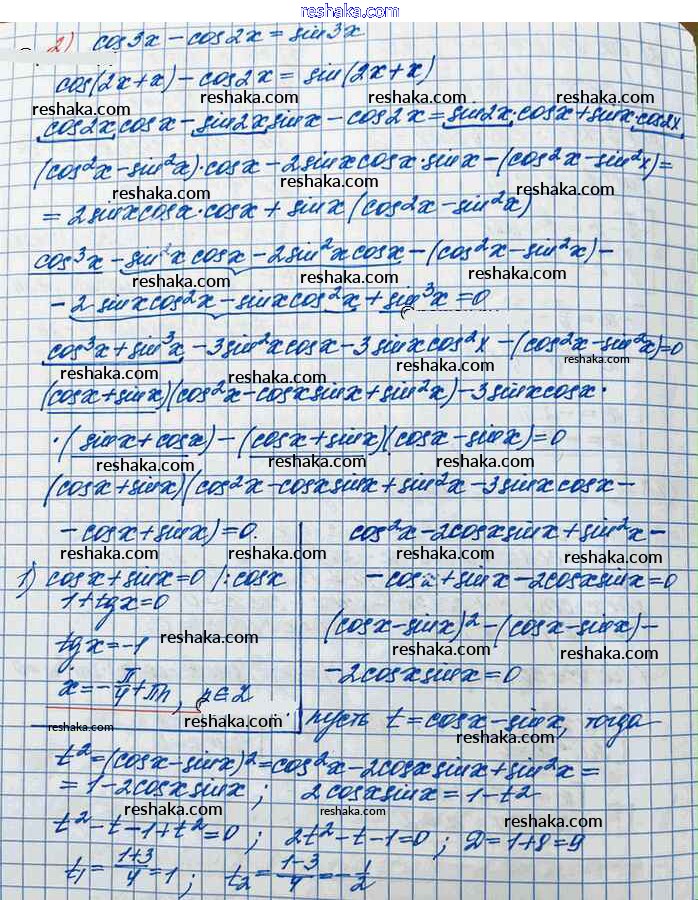 reshaka.com
2) cos3x - cos2x = sin3x
cos(2x+x) - cos2x = sin(2x+x)
reshaka.com reshaka.com reshaka.com reshaka.com
cos2x cosx - sin2x sinx - cos2x = sin2x·cosx + sinx·cos2x
(cos²x - sin²x)·cosx - 2sinxcosx·sinx - (cos²x - sin²x) =
reshaka.com reshaka.com reshaka.com
= 2sinxcosx·cosx + sinx(cos2x - sin²x)
cos³x - sin²x cosx - 2sin²x cosx - (cos²x - sin²x) -
reshaka.com reshaka.com reshaka.com reshaka.com
- 2sinxcos²x - sinxcos²x + sin³x = 0
cos³x + sin³x - 3sin²xcosx - 3sinxcos²x - (cos²x - sin²x) = 0
reshaka.com reshaka.com reshaka.com reshaka.com
(cosx + sinx)(cos²x - cosxsinx + sin²x) - 3sinxcosx·
·(sinx + cosx) - (cosx + sinx)(cosx - sinx) = 0
reshaka.com reshaka.com reshaka.com
(cosx + sinx)(cos²x - cosxsinx + sin²x - 3sinxcosx -
reshaka.com reshaka.com reshaka.com reshaka.com
- cosx + sinx) = 0.
cos²x - 2cosxsinx + sin²x -
reshaka.com reshaka.com reshaka.com reshaka.com
- cosx + sinx - 2cosxsinx = 0
1) cosx + sinx = 0 /:cosx
1 + tgx = 0
(cosx - sinx)² - (cosx - sinx) -
tgx = -1
reshaka.com reshaka.com reshaka.com
- 2cosxsinx = 0
x = -π/4 + πn, n∈Z
reshaka.com reshaka.com
пусть t = cosx - sinx, тогда
reshaka.com
t² = (cosx - sinx)² = cos²x - 2cosxsinx + sin²x =
= 1 - 2cosxsinx ; 2cosxsinx = 1 - t²
reshaka.com reshaka.com reshaka.com
t² - t - 1 + t² = 0 ; 2t² - t - 1 = 0 ; D = 1 + 8 = 9
t₁ = (1+3)/4 = 1 ; t₂ = (1-3)/4 = -1/2
reshaka.com reshaka.com